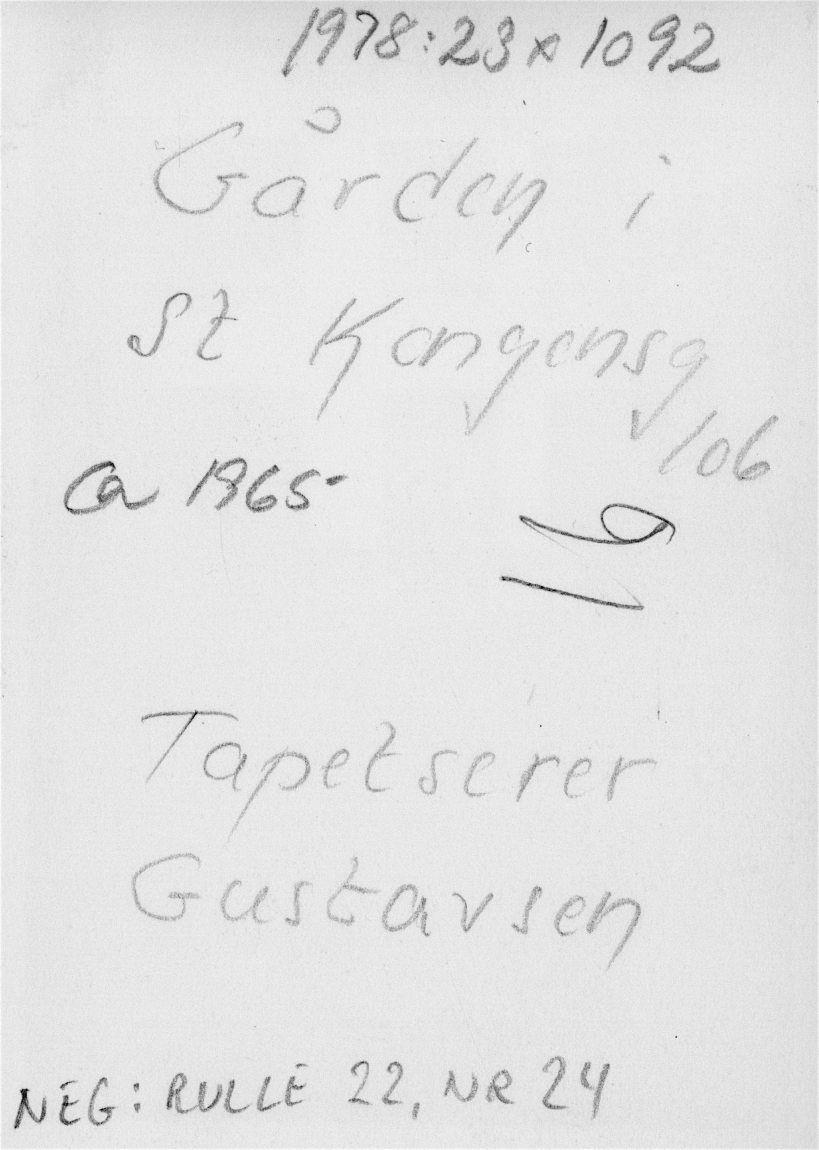 1978:23 x 1092
Gården i
St Kongensg
106
Ca 1965
Tapetserer
Gustavsen
NEG: RULLE 22, NR 24